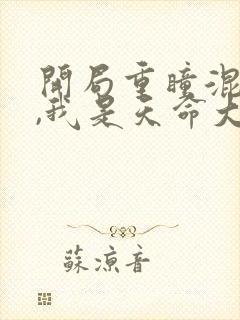 開局重瞳混
,我是天命大
蘇涼音